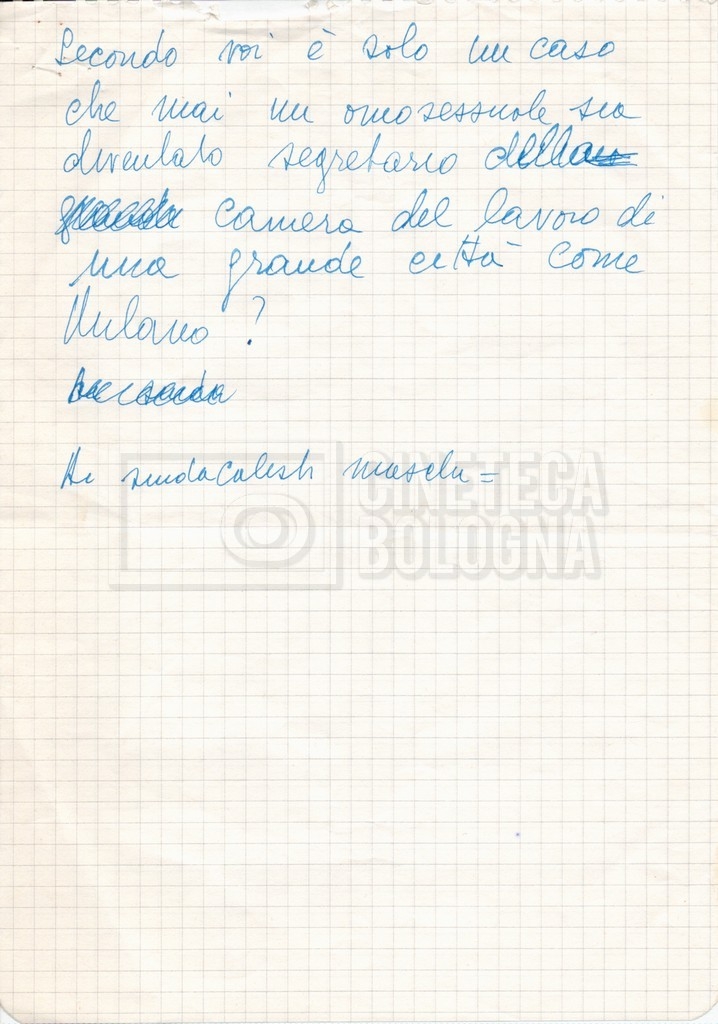 Secondo voi è solo un caso
che mai un omosessuale sia
diventato segretario della
camera del lavoro di
una grande città come
Milano?
Ai sindacalisti maschi =
CINETECA
BOLOGNA